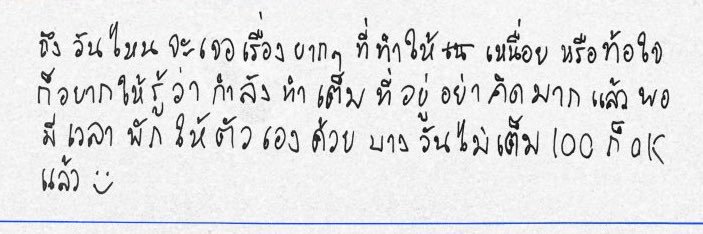 ถึงวันไหนจะเจอเรื่องยากๆ ที่ทำให้ เหนื่อย หรือท้อใจ
ก็อยากให้รู้ว่า กำลังทำเต็มที่อยู่ อย่าคิดมาก แล้วพอ
มีเวลา พักให้ตัวเองด้วย บางวันไม่เต็ม 100 ก็ OK
แล้ว :)